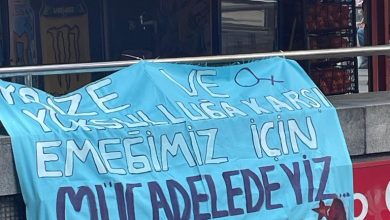 VE
YOKSULLUĞA KARŞI
EMEĞİMİZ İÇİN
MÜCADELEDEYİZ...